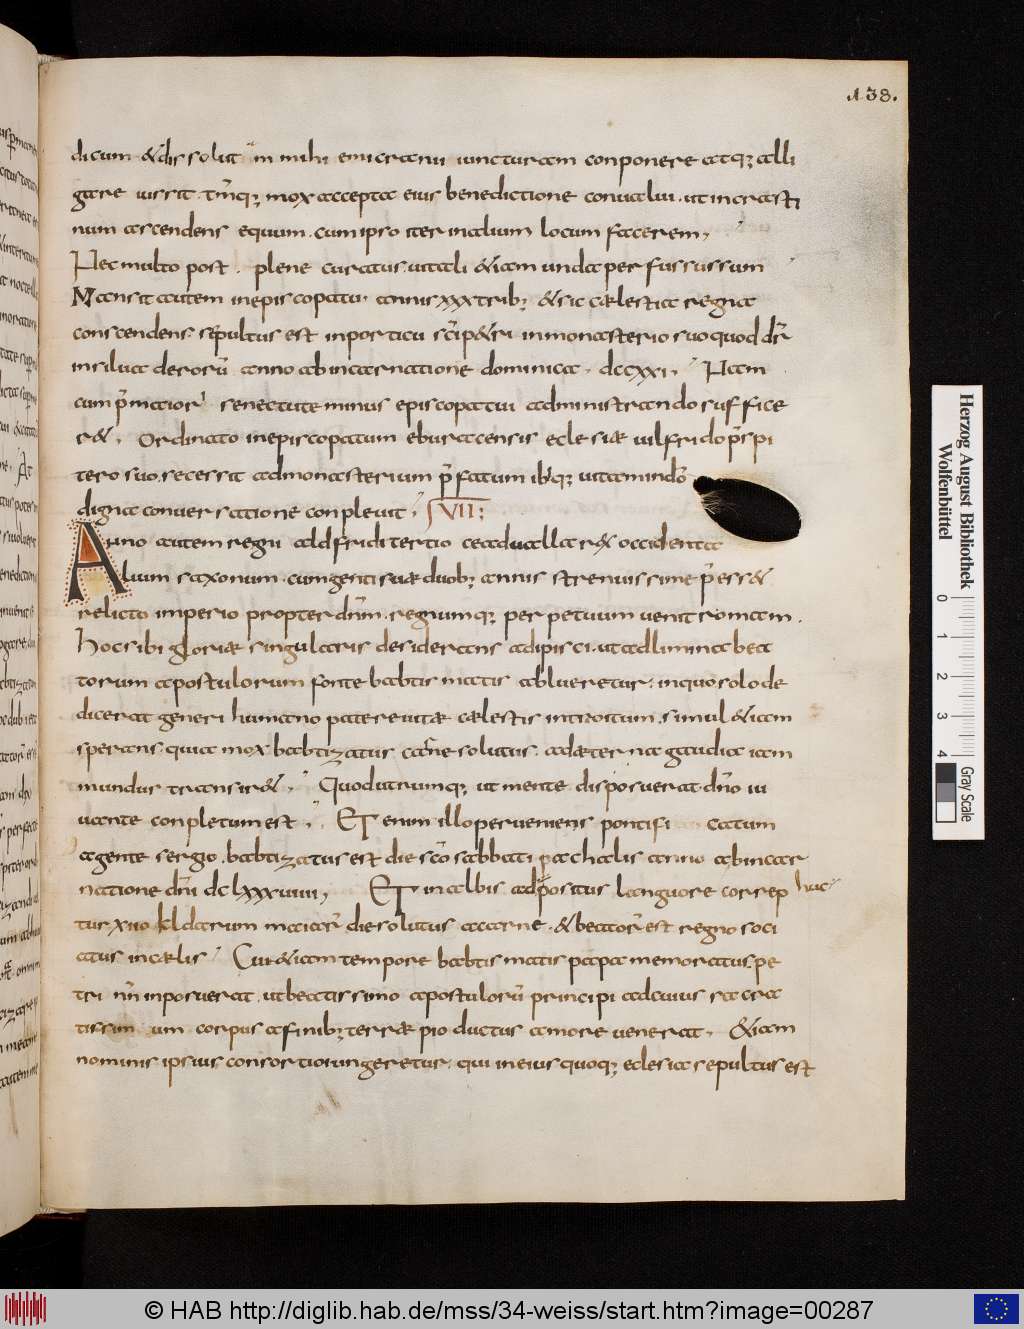 138.
dicum &dissolut in mihi emicranii iuncturam conponere atq; alli
gare iussit. tmq; mox accepta eius benedictione conualui. ut in crasti
num ascendens equum. cum ipso iter in alium locum facerem,
Nec multo post. plene curatus. uitali &iam unda perfussus sum
Mansit autem in episcopatu annis xxxtrib; &sic cælestia regna
conscendens. sepultus est in porticu sci p&ri in monasterio suo quod dr
in silua derorũ anno ab incarnatione dominica. dccxxi, Nam
cum p maiori senectute minus episcopatui administrando suffice
r&. Ordinato in episcopatum eburacensis eclesiæ uilfrido pspi
tero suo. secessit ad monasterium p fatum ibiq; uitam in dõ
digna conuersatione conpleuit, VII;
Anno autem regni aldfridi tertio ceadualla rex occidenta
lium saxonum. cum genti suæ duob; annis strenuissime p ess&
relicto imperio propter dnm. regnumq; perpetuum uenit romam.
hoc sibi gloriæ singularis desiderans adipisci. ut ad limina bea
torum apostulorum fonte babtismatis ablueretur. in quo solo de
dicerat generi humano patere uitæ cælestis introitum. simul &iam
sperans. quia mox babtizatus. carne solutus. ad æterna gaudia iam
mundus transir&. Quod utrumq; ut mente disposuerat dño iu
uante conpletum est, ET enim illo perueniens pontifi catum
agente sergio. babtizatus est die scõ sabbati paschalis anno ab incar
natione dñi dclxxxuiiii, ET in albis adpositus languore correp hac
tus xiio kldarum maiar die solutus a carne. &beator est regno soci
atus in cælis Cui &iam tempore babtismatis papa memoratus. pe
tri nñ inposuerat. ut beatissimo apostulorũ principi ad cuius sacra
tissim um corpus a finib; terræ pio ductus amore uenerat, &iam
nominis ipsius consortio iungeretur. qui in eius quoq; eclesia sepultus est
Herzog August Bibliothek
Wolfenbüttel
0
1
2
3
4
Gray Scale
© HAB http://diglib.hab.de/mss/34-weiss/start.htm?image=00287